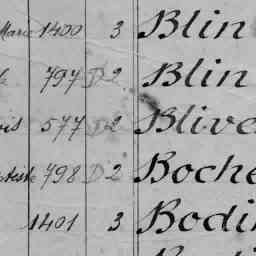 Marie 1400 3 Blin
797 D 2 Blin
is 577 D 2 Blive
tiste 798 D 2 Boche
1401 3 Bodi